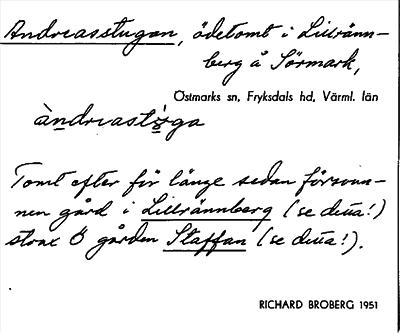 Andreasstugan, ödetomt i Lillränn-
berg å Sörmark,
Östmarks sn, Fryksdals hd, Värml. län
àndreastùga
Tomt efter för länge sedan försvun-
nen gård i Lillrännberg (se detta!)
strax Ö gården Staffan (se detta!).
RICHARD BROBERG 1951